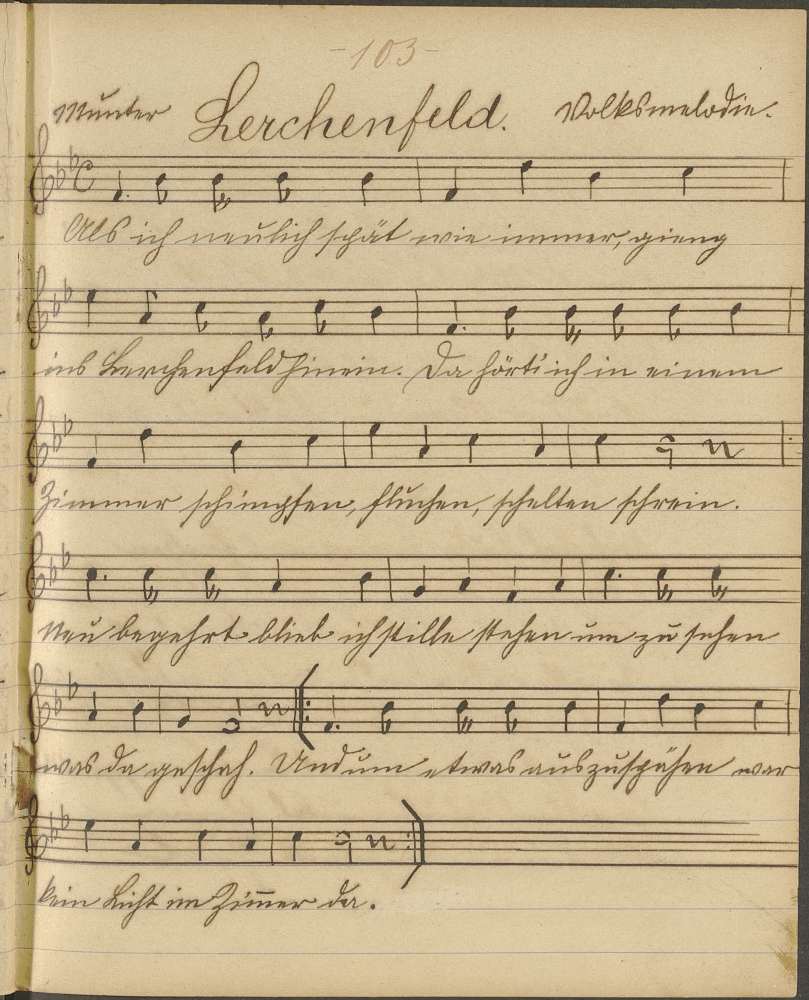 -103-
Munter Lerchenfeld. Volksmelodie.
Als ich neulich spät wie immer, gieng
ins Lerchenfeld hinein. Da hört' ich in einem
Zimmer schimpfen, fluchen, schelten schrein.
Neu begehrt blieb ich stille stehen um zu sehen
was da geschah. Und um etwas auszuspähen war
kein Licht im Zim̄er da.